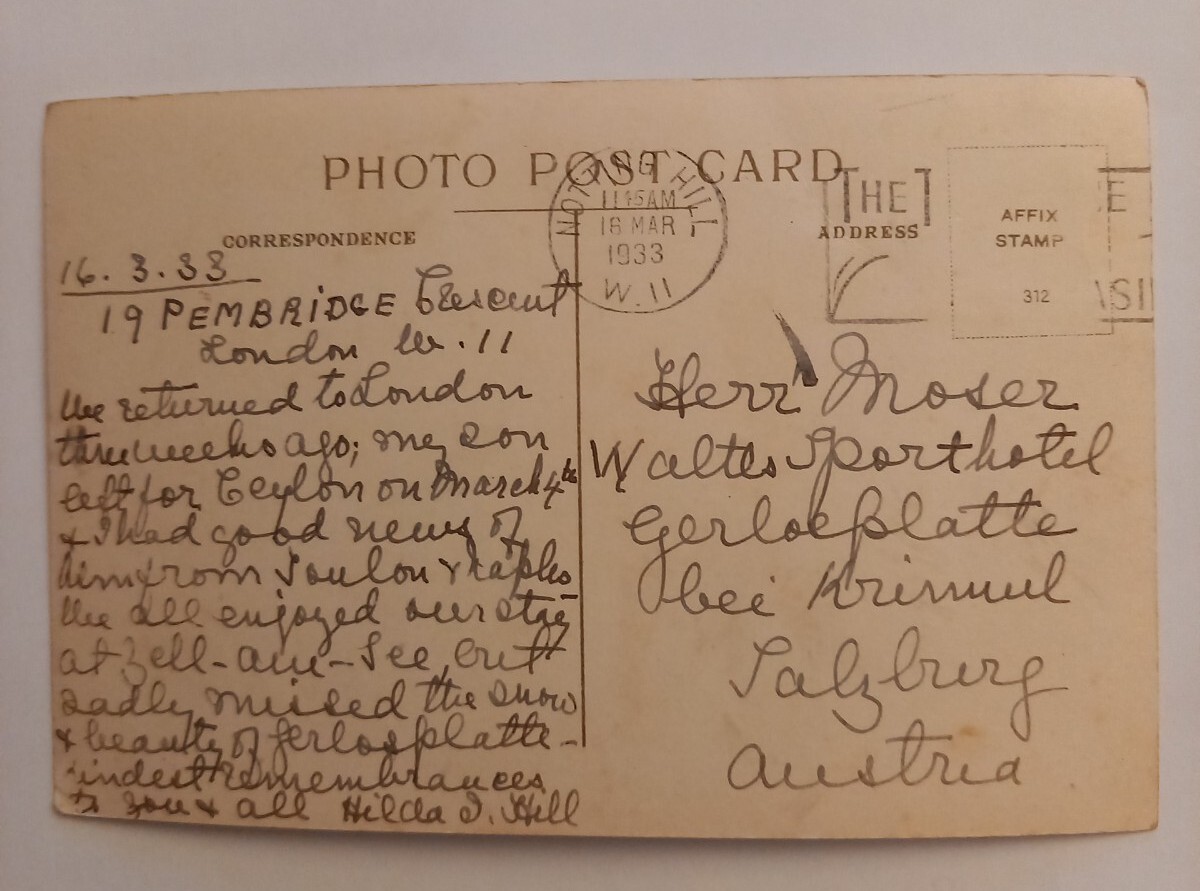 PHOTO POST CARD
CORRESPONDENCE
16.3.33
19 PEMBRIDGE Crescent
London W.11
We returned to London
three weeks ago; my son
left for Ceylon on March 4th
& I had good news of
him from Toulon & Naples.
We all enjoyed our stay
at Zell-am-See, but
sadly missed the snow
& beauty of Gerlosplatte -
kindest remembrances
to you & all Hilda I. Hill
NOTTING HILL
11 45 AM
16 MAR
1933
W.11
THE
ADDRESS
AFFIX
STAMP
312
E
SI
Herr Moser
Waltls Sporthotel
Gerlosplatte
bei Krimml
Salzburg
Austria